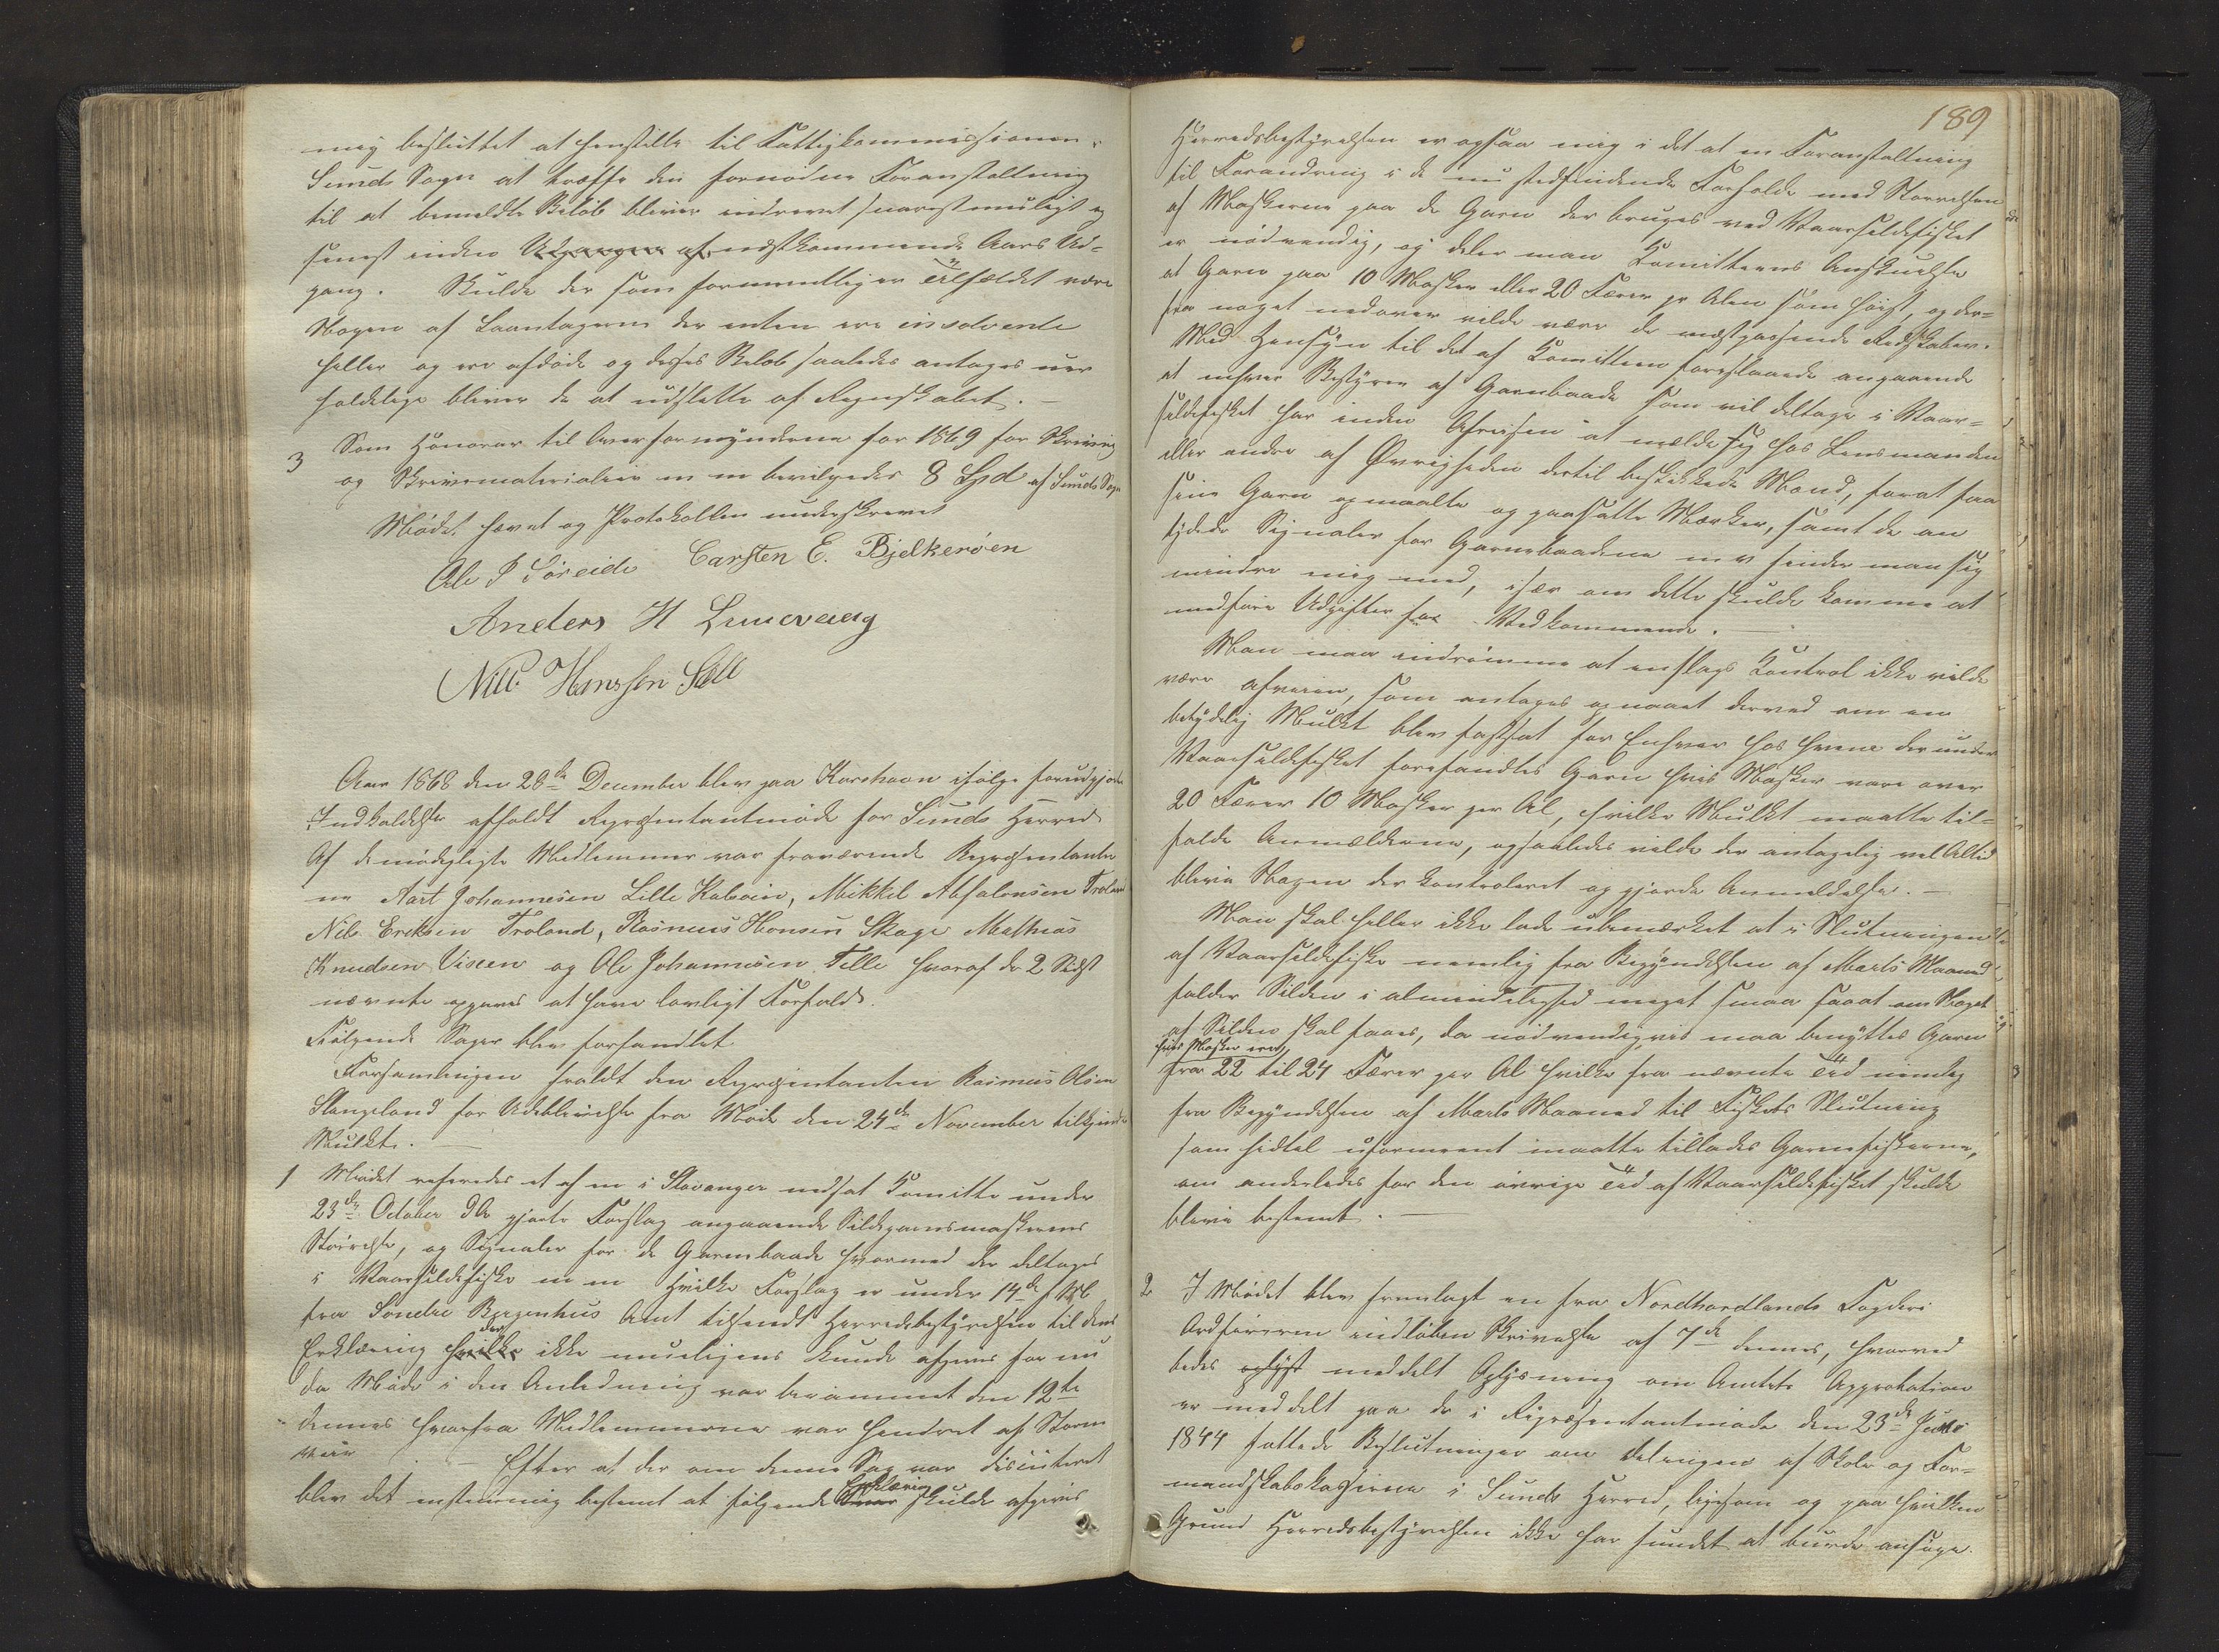 mig besluttet at henstille til Fattigkommissionen i
Sunds Sogn at træffe den fornødne Foranstaltning
til at bemeldte Beløb bliver inddrevet snarest muligt og
senest inden Udgangen af næstkommende Aars Ud-
gang. Skulde der som formentligen Tilfældet være
Nogen af Laantagerne der enten ere insolvente
heller og ere afdøde og disses Beløb saaledes antages uer
holdelige bliver de at udslette af Regnskabet. -
3 Som Honorar til Overformynderne for 1869 for Skrivning
og Skrivematerialier m m bevilgedes 8 Spd af Sunds Sogn
Mødet hævet og Protokollen underskrevet
Ole P Søreide Carsten E. Bjelkerøen
Anders H Lunevaag
Nils Hanssen Sæle
Aar 1868 den 28de December blev paa Korshavn ifølge forudgjort
Indkaldelse afholdt Repræsentantmøde for Sunds Herred
Af de mødepligte Medlemmer var fraværende Repræsentanter
ne Aart Johannesen Lille Kalsøen, Mikkel Absalonsen Troland
Nils Eriksen Troland, Rasmus Hansen Skage Mathias
Knudsen Viseen og Ole Johannesen Telle hvoraf de 2 Sidst
nævnte opgaves at have lovligt Forfald.
Følgende Sager blev forhandlet
Forsamlingen fraldt den Repræsentanten Rasmus Olsen
Slangeland for Udeblivelse fra Møde den 24de November tilkjendte
Mulkt. -
1 Mødet refereredes et af en i Stavanger nedsat Komitte under
23de October d A gjorte Forslag angaaende Sildegarnsmaskernes
Størrelse, og Signaler for de Garnbaade hvormed der deltages
i Vaarsildfiske m m Hvilke Forslag er under 14de f M
fra Søndre Bergenhus Amt tilsendt Herredsbestyrelsen til dens
Erklæring hvilke der ikke mueligens kunde afgives før nu
da Møde i den Anledning var berammet den 12te
dennes hvorfra Medlemmerne var hendret af Storm
veir - Efter at der om denne Sag var discuteret
blev det enstemmig bestemt at følgende Erklæring skulde afgives
189
Herredsbestyrelsen er ogsaa enig i det at en Foranstaltning
til Forandring i de nu stedfindende Forholde med Størrelsen
af Maskerne paa de Garn der bruges ved Vaarsildefisket
er nødvendig, og deler man Komitteens Anskuelse
at Garn paa 10 Masker eller 20 Færer pr Alen som høist, og der-
fra noget nedover vilde være de mestpassende Redskaber.
Med Hensyn til det af Komitteen foreslaaede angaaende
at enhver Bestyrer af Garnbaade som vil deltage i Vaar-
sildefisket har inden Afreisen at melde sig hos Lensmanden
eller andre af Øvrigheden dertil beskikkede Mand, forat faa
sine Garn opmaalte og paasatte Mærker, samt de an
tydede Signaler for Garnebaadene m v finder man sig
mindre enig med, især om dette skulde komme at
medføre Udgifter for Vedkommende. -
Man maa indrømme at enslags Kontrol ikke vilde
være afveien, som antages opnaaet derved om en
betydelig Mulkt blev fastsat for Enhver hos hvem der under
Vaarsildefisket forefandtes Garn hvis Masker vare over
20 Færer 10 Masker per Al, hvilke Mulkt maatte til-
falde Anmelderne, ogsaaledes vilde der antagelig vel Altid
blive Nogen der kontroleret og gjorde Anmeldelse. -
Man skal heller ikke lade ubemærket at i Slutningen
af Vaarsildefiske nemlig fra Begyndelsen af Marts Maaned
falder Silden i almindelighed meget smaa saaat om Noget
af Silden skal faaes, da nødvendigvis maa benyttes Garn
hvis Masker ere
fra 22 til 24 Færer per Al hvilke fra nævnte Tid nemlig
fra Begyndelsen af Marts Maaned til Fiskets Slutning
som hidtil uformeent maatte tillades Garnfiskerne,
om anderledes for den øvrige Tid af Vaarsildefisket skulde
blive bestemt. -
2 I Mødet blev fremlagt en fra Nordhordlands Fogderi
Ordføreren indløben Skrivelse af 7de dennes, hvorved
bedes oplyst meddelt Oplysning om Amtets Approbation
er meddelt paa de i Repræsentantmøde den 23de Juni
1844 fattede Beslutninger om Delingen af Skole og For-
mandskabskasserne i Sunds Herred, ligesom og paa hvilken
Grund Herredsbestyrelsen ikke har fundet at burde ansøge.